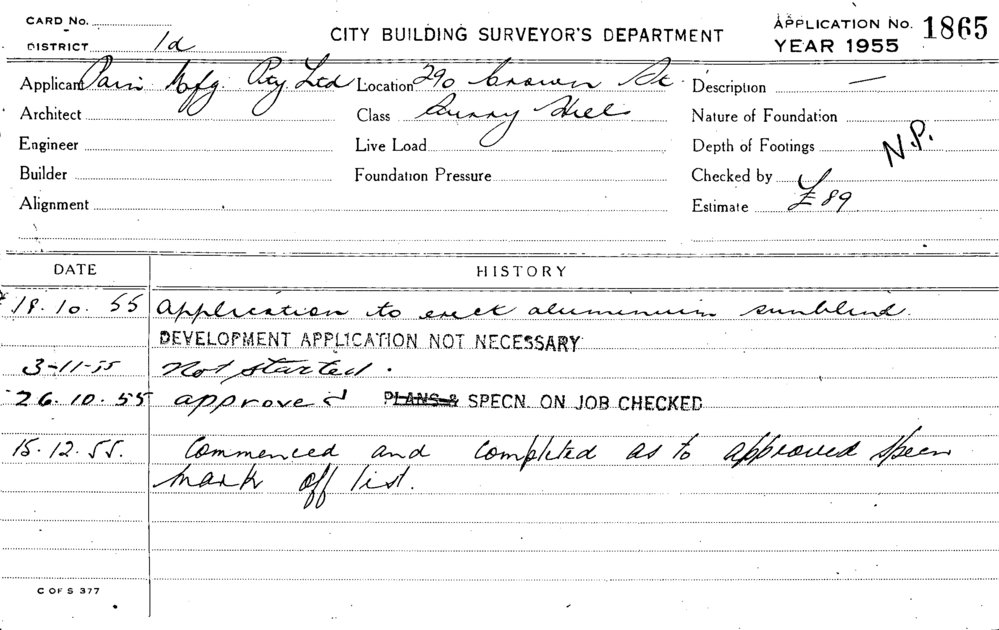 CARD No.
DISTRICT 1d
CITY BUILDING SURVEYOR'S DEPARTMENT
APPLICATION No. 1865
YEAR 1955
Applicant Mfg. Pty Ltd Location 290 Crown St Description —
Architect Class Surry Hills Nature of Foundation
Engineer Live Load Depth of Footings N.P.
Builder Foundation Pressure Checked by
Alignment Estimate £89
DATE HISTORY
19.10.55 Application to erect aluminium sunblind.
DEVELOPMENT APPLICATION NOT NECESSARY
3-11-55 Not started.
26.10.55 approved PLANS & SPECN. ON JOB CHECKED
15.12.55. Commenced and completed as to approved specn
mark off list.
C OF S 377